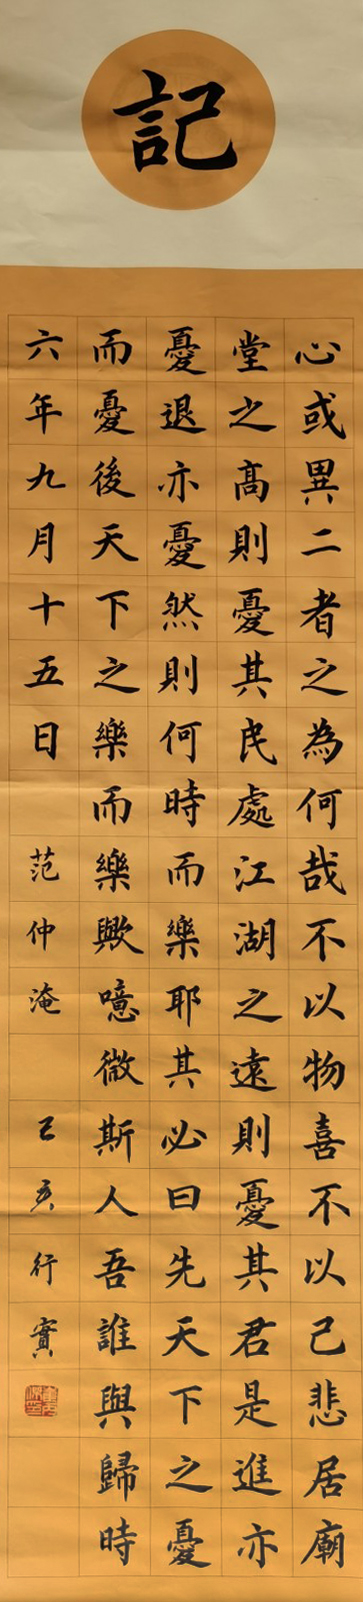 記
心或異二者之為何哉不以物喜不以己悲居廟
堂之高則憂其民處江湖之遠則憂其君是進亦
憂退亦憂然則何時而樂耶其必曰先天下之憂
而憂後天下之樂而樂歟噫微斯人吾誰與歸時
六年九月十五日 范仲淹 己亥 行實